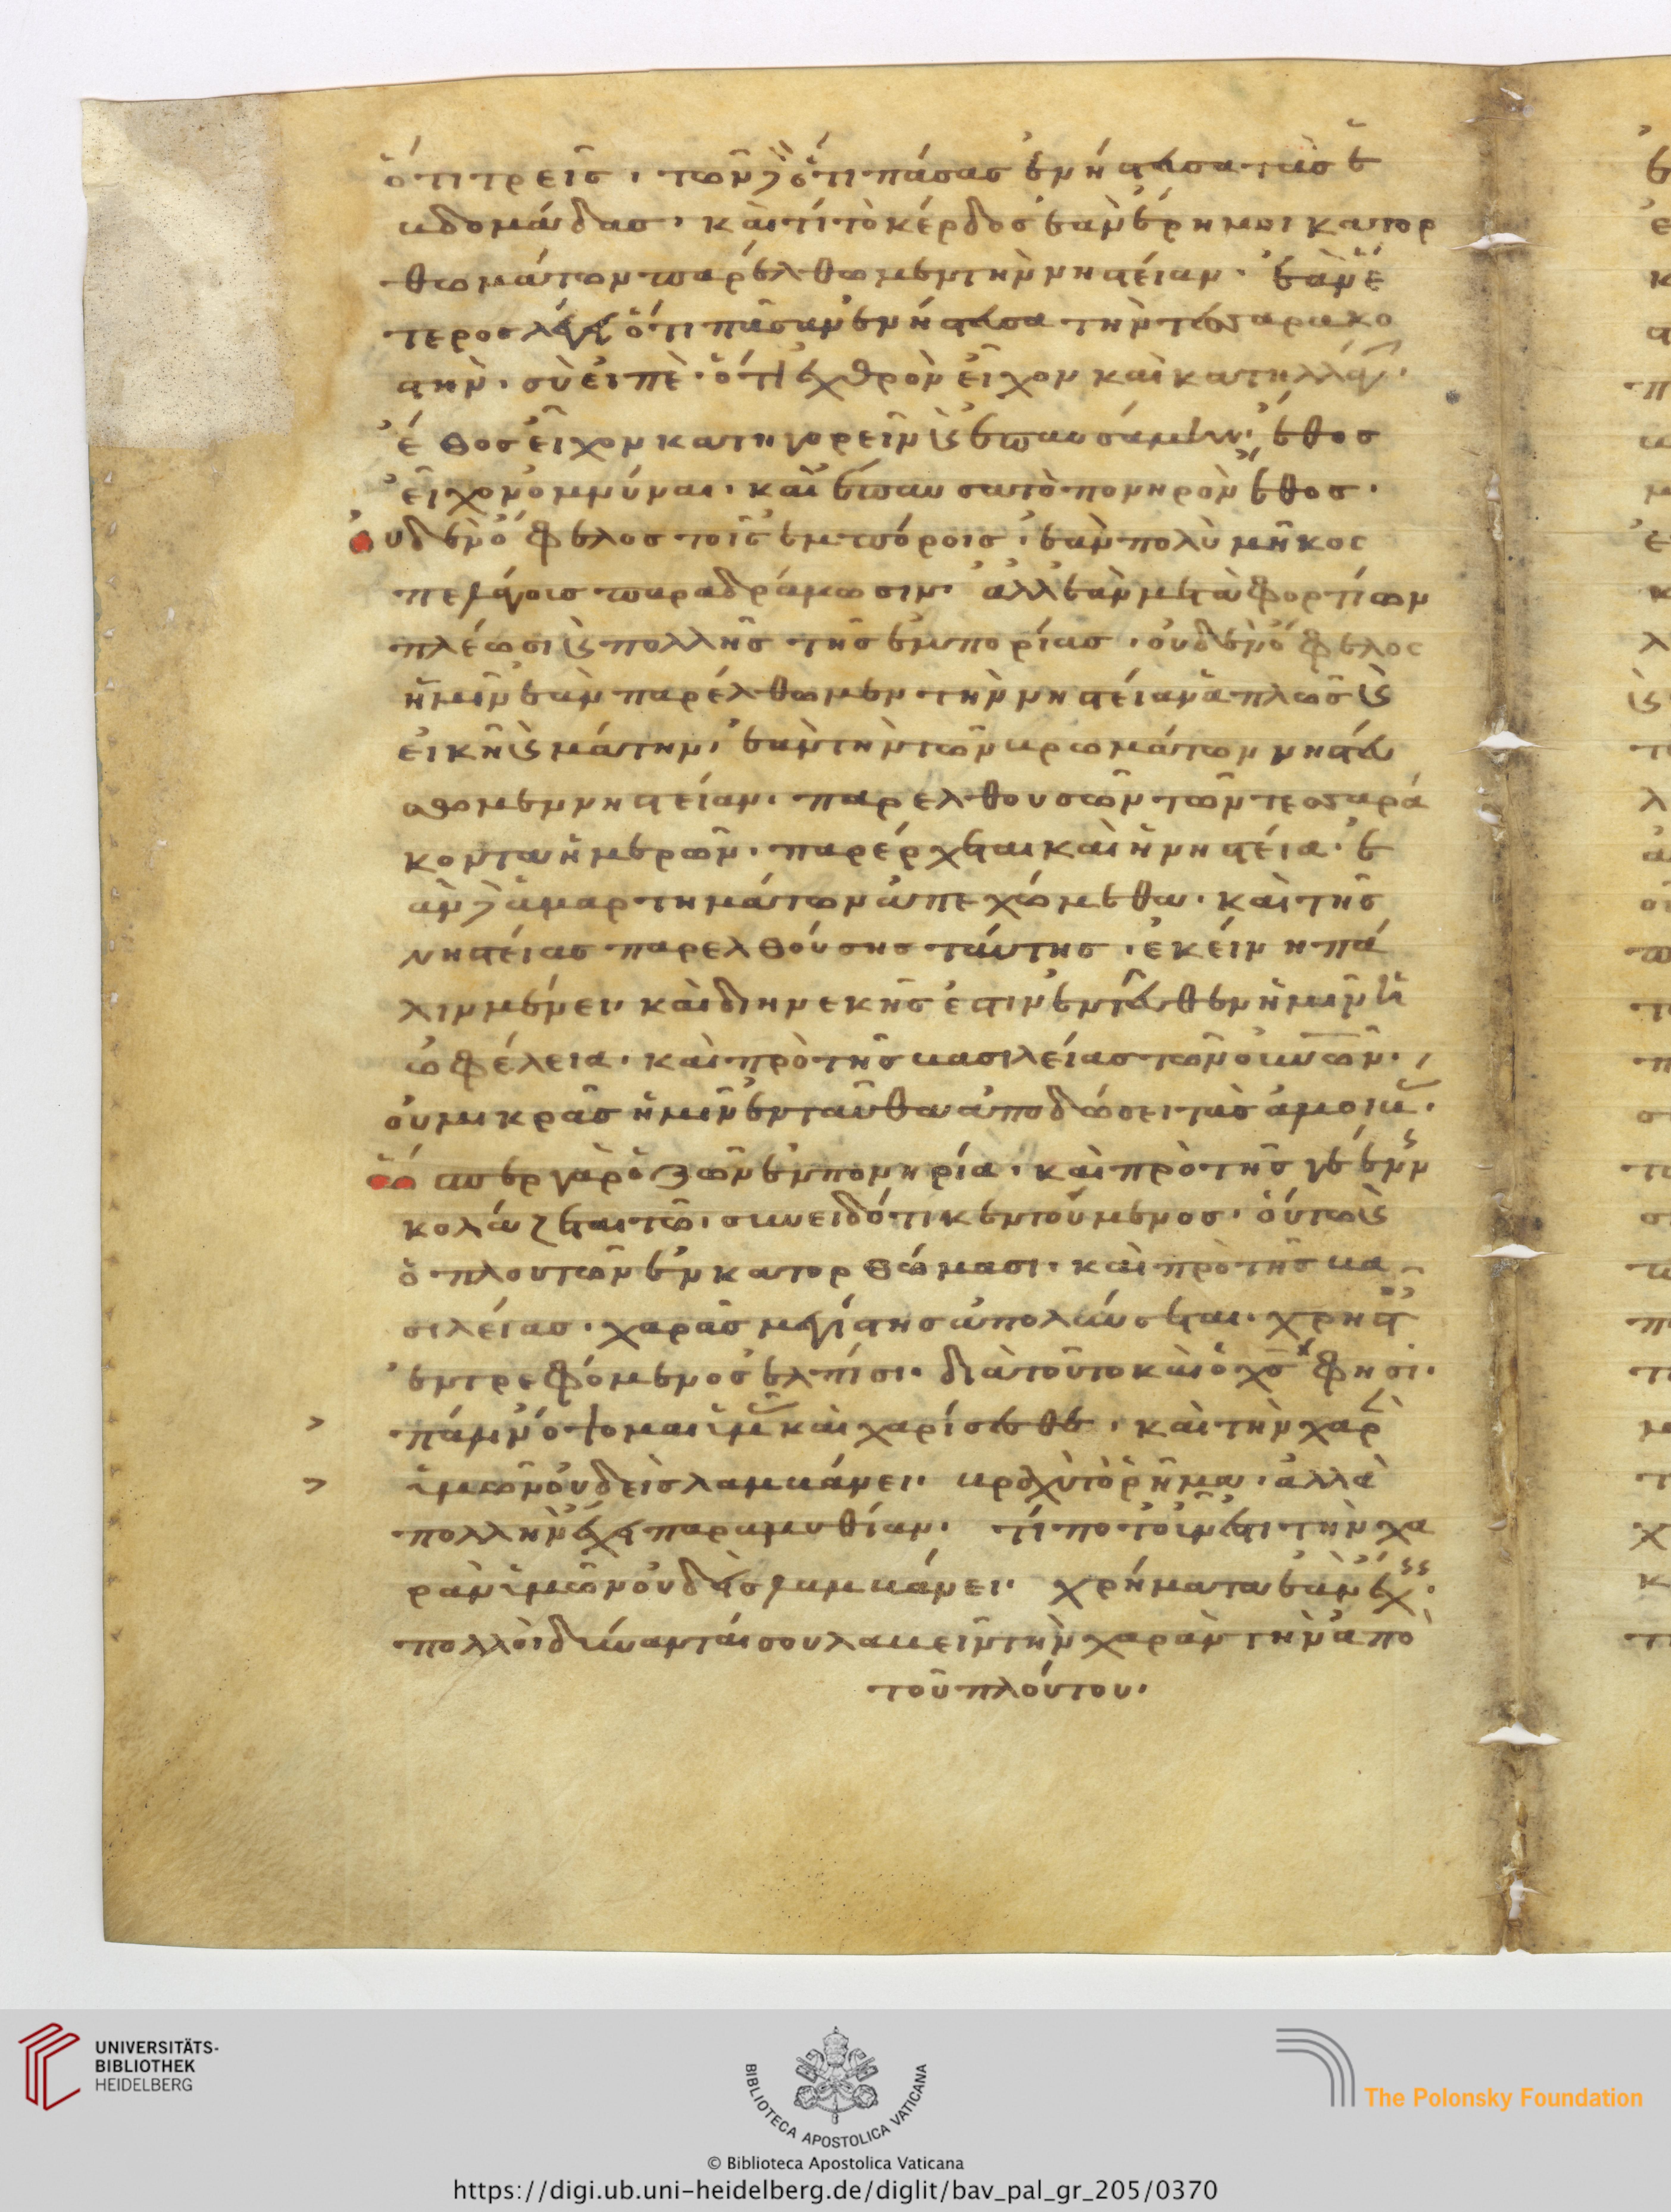 ὅτι τρεῖς, τῶν δὲ ὅτι πάσας ἐνήστευσα τὰς ἑ
βδομάδας· καὶ τί τὸ κέρδος ἐὰν ἔρημοι κατορ
θωμάτων παρέλθωμεν τὴν νηστείαν· ἐὰν ἕ
τερος λέγει ὅτι πᾶσαν ἐνήστευσα τὴν τεσσαρακο
στὴν· σὺ εἰπὲ· ὅτι ἐχθρὸν εἶχον καὶ κατηλλάγην·
ἔθος εἶχον κατηγορεῖν καὶ ἐπαυσάμην· ἔθος
εἶχον ὀμνύναι· καὶ ἔπαυσα τὸ πονηρὸν ἔθος·
οὐδὲν ὄφελος τοῖς ἐμπόροις· ἐὰν πολὺ μῆκος
πελάγοις παραδράμωσιν· ἀλλ' ἐὰν μετὰ φορτίων
πλέωσι καὶ πολλῆς τῆς ἐμπορίας· οὐδὲν ὄφελος
ἡμῖν ἐὰν παρέλθωμεν τὴν νηστείαν ἁπλῶς καὶ
εἰκῆ καὶ μάτην· ἐὰν τὴν τῶν βρωμάτων νηστεύ
σωμεν νηστείαν· παρελθουσῶν τῶν τεσσαρά
κοντα ἡμερῶν· παρέρχεται καὶ ἡ νηστεία· ἐ
ὰν δὲ ἁμαρτημάτων ἀπεχώμεθα· καὶ τῆς
νηστείας παρελθούσης ταύτης· ἐκείνη πά
λιν μένει· καὶ διηνεκὴς ἔστιν ἐντεῦθεν ἡμῖν ἡ
ὠφέλεια· καὶ πρὸ τῆς βασιλείας τῶν οὐνῶν·
οὐ μικρὰς ἡμῖν ἐνταῦθα ἀποδώσει τὰς ἀμοιβ·
ὥσπερ γὰρ ὁ ζῶν ἐν πονηρία· καὶ πρὸ τῆς γεέννης
κολάζεται τῶ συνειδότι κεντούμενος· οὕτω καὶ
ὁ πλουτῶν ἐν κατορθώμασι· καὶ πρὸ τῆς βα
σιλείας· χαρᾶς μεγίστης ἀπολαύσεται· χρηστ
ἐντρεφόμενος ἐλπίσι· διὰ τοῦτο καὶ ὁ χς φησί·
πάλιν ὄψομαι ὑμᾶς καὶ χαρίσεσθε· καὶ τὴν χαρὰ
ὑμῶν οὐδεὶς λαμβάνει· βραχὺ τὸ ῥῆμα· ἀλλὰ
πολλὴν ἔχει παραμυθίαν· τί ποτ' οὖν ἐστι τὴν χα
ρὰν ὑμῶν οὐδεὶς λαμβάνει· χρήματα ἐὰν ἔχης·
πολλοὶ δύνανταί σου λαβεῖν τὴν χαρὰν τὴν ἀπὸ
τοῦ πλούτου·
UNIVERSITÄTS-
BIBLIOTHEK
HEIDELBERG
BIBLIOTECA APOSTOLICA VATICANA
The Polonsky Foundation
© Biblioteca Apostolica Vaticana
https://digi.ub.uni-heidelberg.de/diglit/bav_pal_gr_205/0370